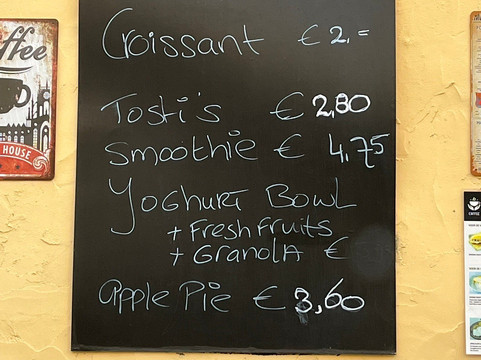 Croissant € 2,=
Tosti's € 2,80
Smoothie € 4,75
Yoghurt Bowl
+ Fresh Fruits
+ Granola €
Apple Pie € 3,60
ffee
HOUSE
COFFEE